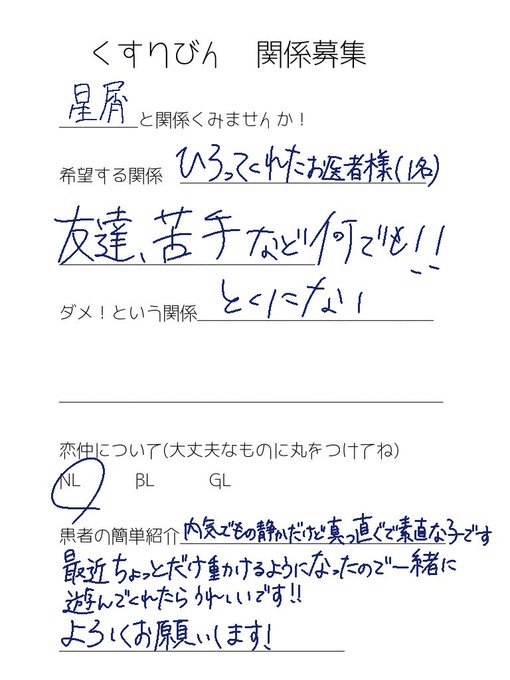 くすりびん 関係募集
星屑と関係くみませんか！
希望する関係 ひろってくれたお医者様(1名)
友達、苦手など何でも!!
ダメ！という関係 とくにない
恋仲について(大丈夫なものに丸をつけてね)
NL BL GL
患者の簡単紹介 内気でもの静かだけど真っ直ぐで素直な子です
最近ちょっとだけ動かけるようになったので一緒に
遊んでくれたらうれしいです!!
よろしくお願いします!